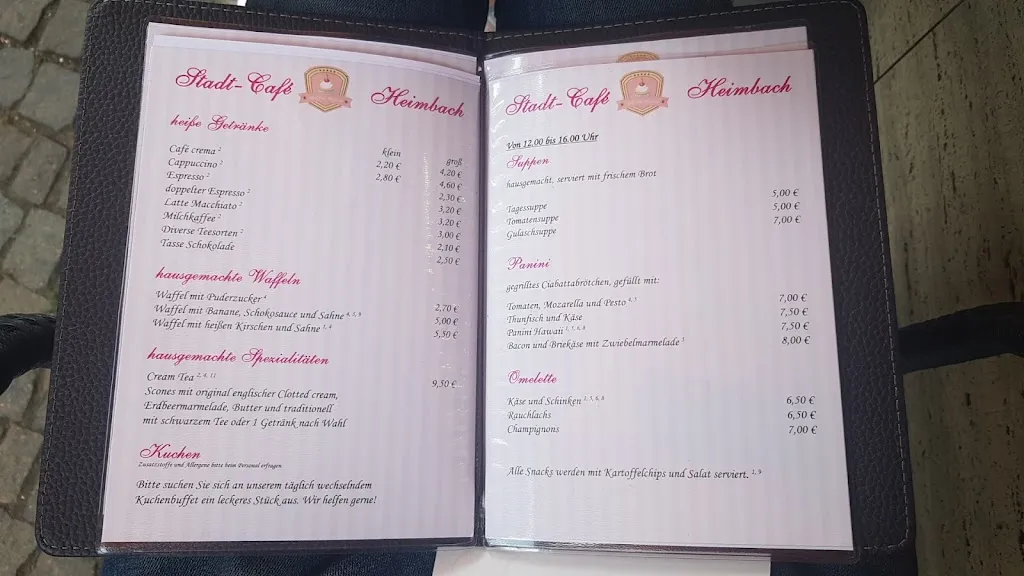 Stadt-Café Heimbach
heiße Getränke
klein groß
Café crema ² 2,20 € 4,20 €
Cappuccino ² 2,80 € 4,60 €
Espresso ² 2,30 €
doppelter Espresso ² 3,20 €
Latte Macchiato ² 3,20 €
Milchkaffee ² 3,00 €
Diverse Teesorten ² 2,10 €
Tasse Schokolade 2,50 €
hausgemachte Waffeln
Waffel mit Puderzucker ⁴ 2,70 €
Waffel mit Banane, Schokosauce und Sahne 5,00 €
Waffel mit heißen Kirschen und Sahne 5,50 €
hausgemachte Spezialitäten
Cream Tea 2, 4, 12 9,50 €
Scones mit original englischer Clotted cream,
Erdbeermarmelade, Butter und traditionell
mit schwarzem Tee oder 1 Getränk nach Wahl
Kuchen
Zusatzstoffe und Allergene bitte beim Personal erfragen
Bitte suchen Sie sich an unserem täglich wechselndem
Kuchenbuffet ein leckeres Stück aus. Wir helfen gerne!
Stadt-Café Heimbach
Von 12.00 bis 16.00 Uhr
Suppen
hausgemacht, serviert mit frischem Brot
Tagessuppe 5,00 €
Tomatensuppe 5,00 €
Gulaschsuppe 7,00 €
Panini
gegrilltes Ciabattabrötchen, gefüllt mit:
Tomaten, Mozarella und Pesto 7,00 €
Thunfisch und Käse 7,50 €
Panini Hawaii 7,50 €
Bacon und Briekäse mit Zwiebelmarmelade 8,00 €
Omelette
Käse und Schinken 6,50 €
Rauchlachs 6,50 €
Champignons 7,00 €
Alle Snacks werden mit Kartoffelchips und Salat serviert.